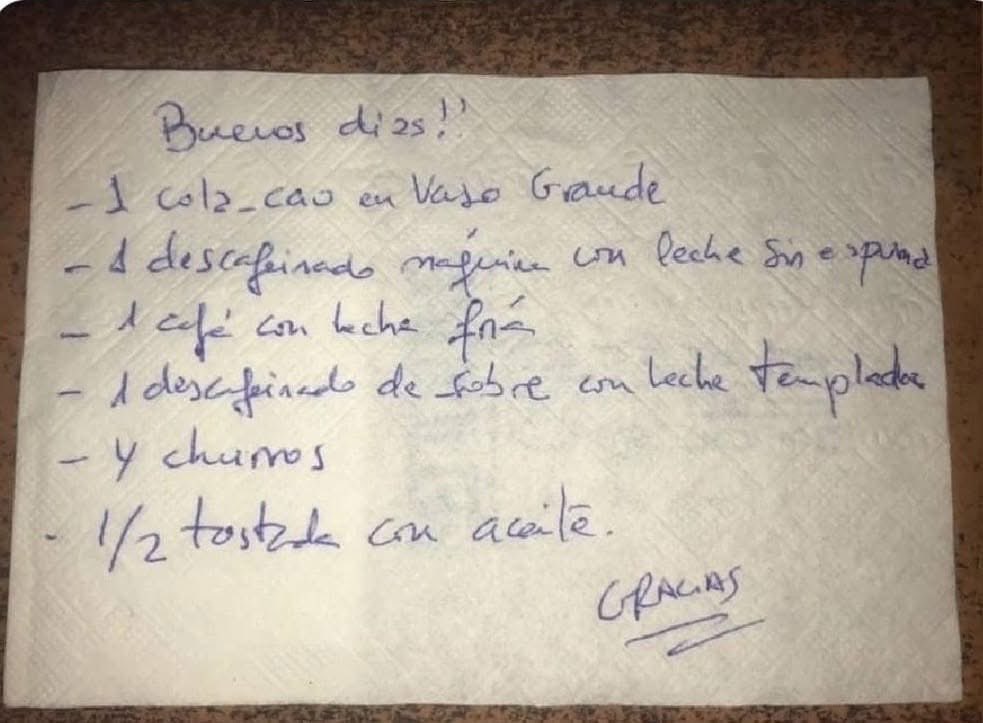 Buenos dias!!
- 1 cola-cao en Vaso Grande
- 1 descafeinado máquina con leche sin espuma
- 1 café con leche fría
- 1 descafeinado de sobre con leche templada
- 4 churros
- 1/2 tostada con aceite.
GRACIAS